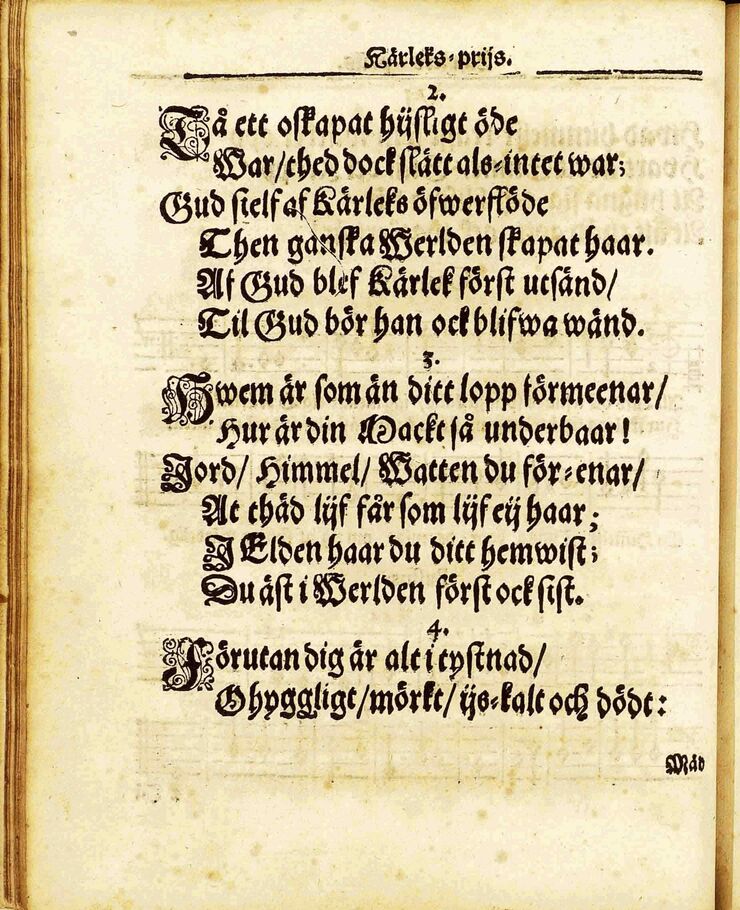 Kärleks-prijs.
2.
Tå ett oskapat hijsligt öde
War/thed dock slätt als-intet war;
Gud sielf af Kärleks öfwerflöde
Then ganska Werlden skapat haar.
Af Gud blef Kärlek först utsänd/
Til Gud bör han ock blifwa wänd.
3.
Hwem är som än ditt lopp förmeenar/
Hur är din Mackt så underbaar!
Jord/ Himmel/ Watten du för-enar/
At thäd lijf får som lijf eij haar;
J Elden haar du ditt hemwist;
Du äst i Werlden först ock sist.
4.
Förutan dig är alt i tystnad/
Ohyggligt/mörkt/ ijs-kalt och dödt:
Mäd